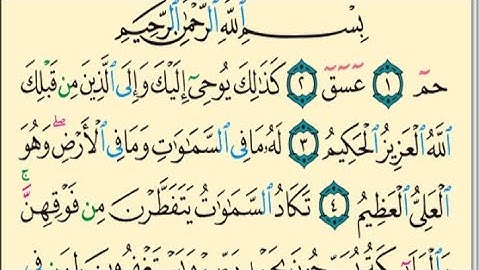 بِسْمِ اللَّهِ الرَّحْمَٰنِ الرَّحِيمِ
حمٓ ١ عٓسٓقٓ ٢ كَذَٰلِكَ يُوحِىٓ إِلَيْكَ وَإِلَى الَّذِينَ مِن قَبْلِكَ
اللَّهُ الْعَزِيزُ الْحَكِيمُ ٣ لَهُۥ مَا فِى السَّمَٰوَٰتِ وَمَا فِى الْأَرْضِ ۖ وَهُوَ
الْعَلِىُّ الْعَظِيمُ ٤ تَكَادُ السَّمَٰوَٰتُ يَتَفَطَّرْنَ مِن فَوْقِهِنَّ ۚ